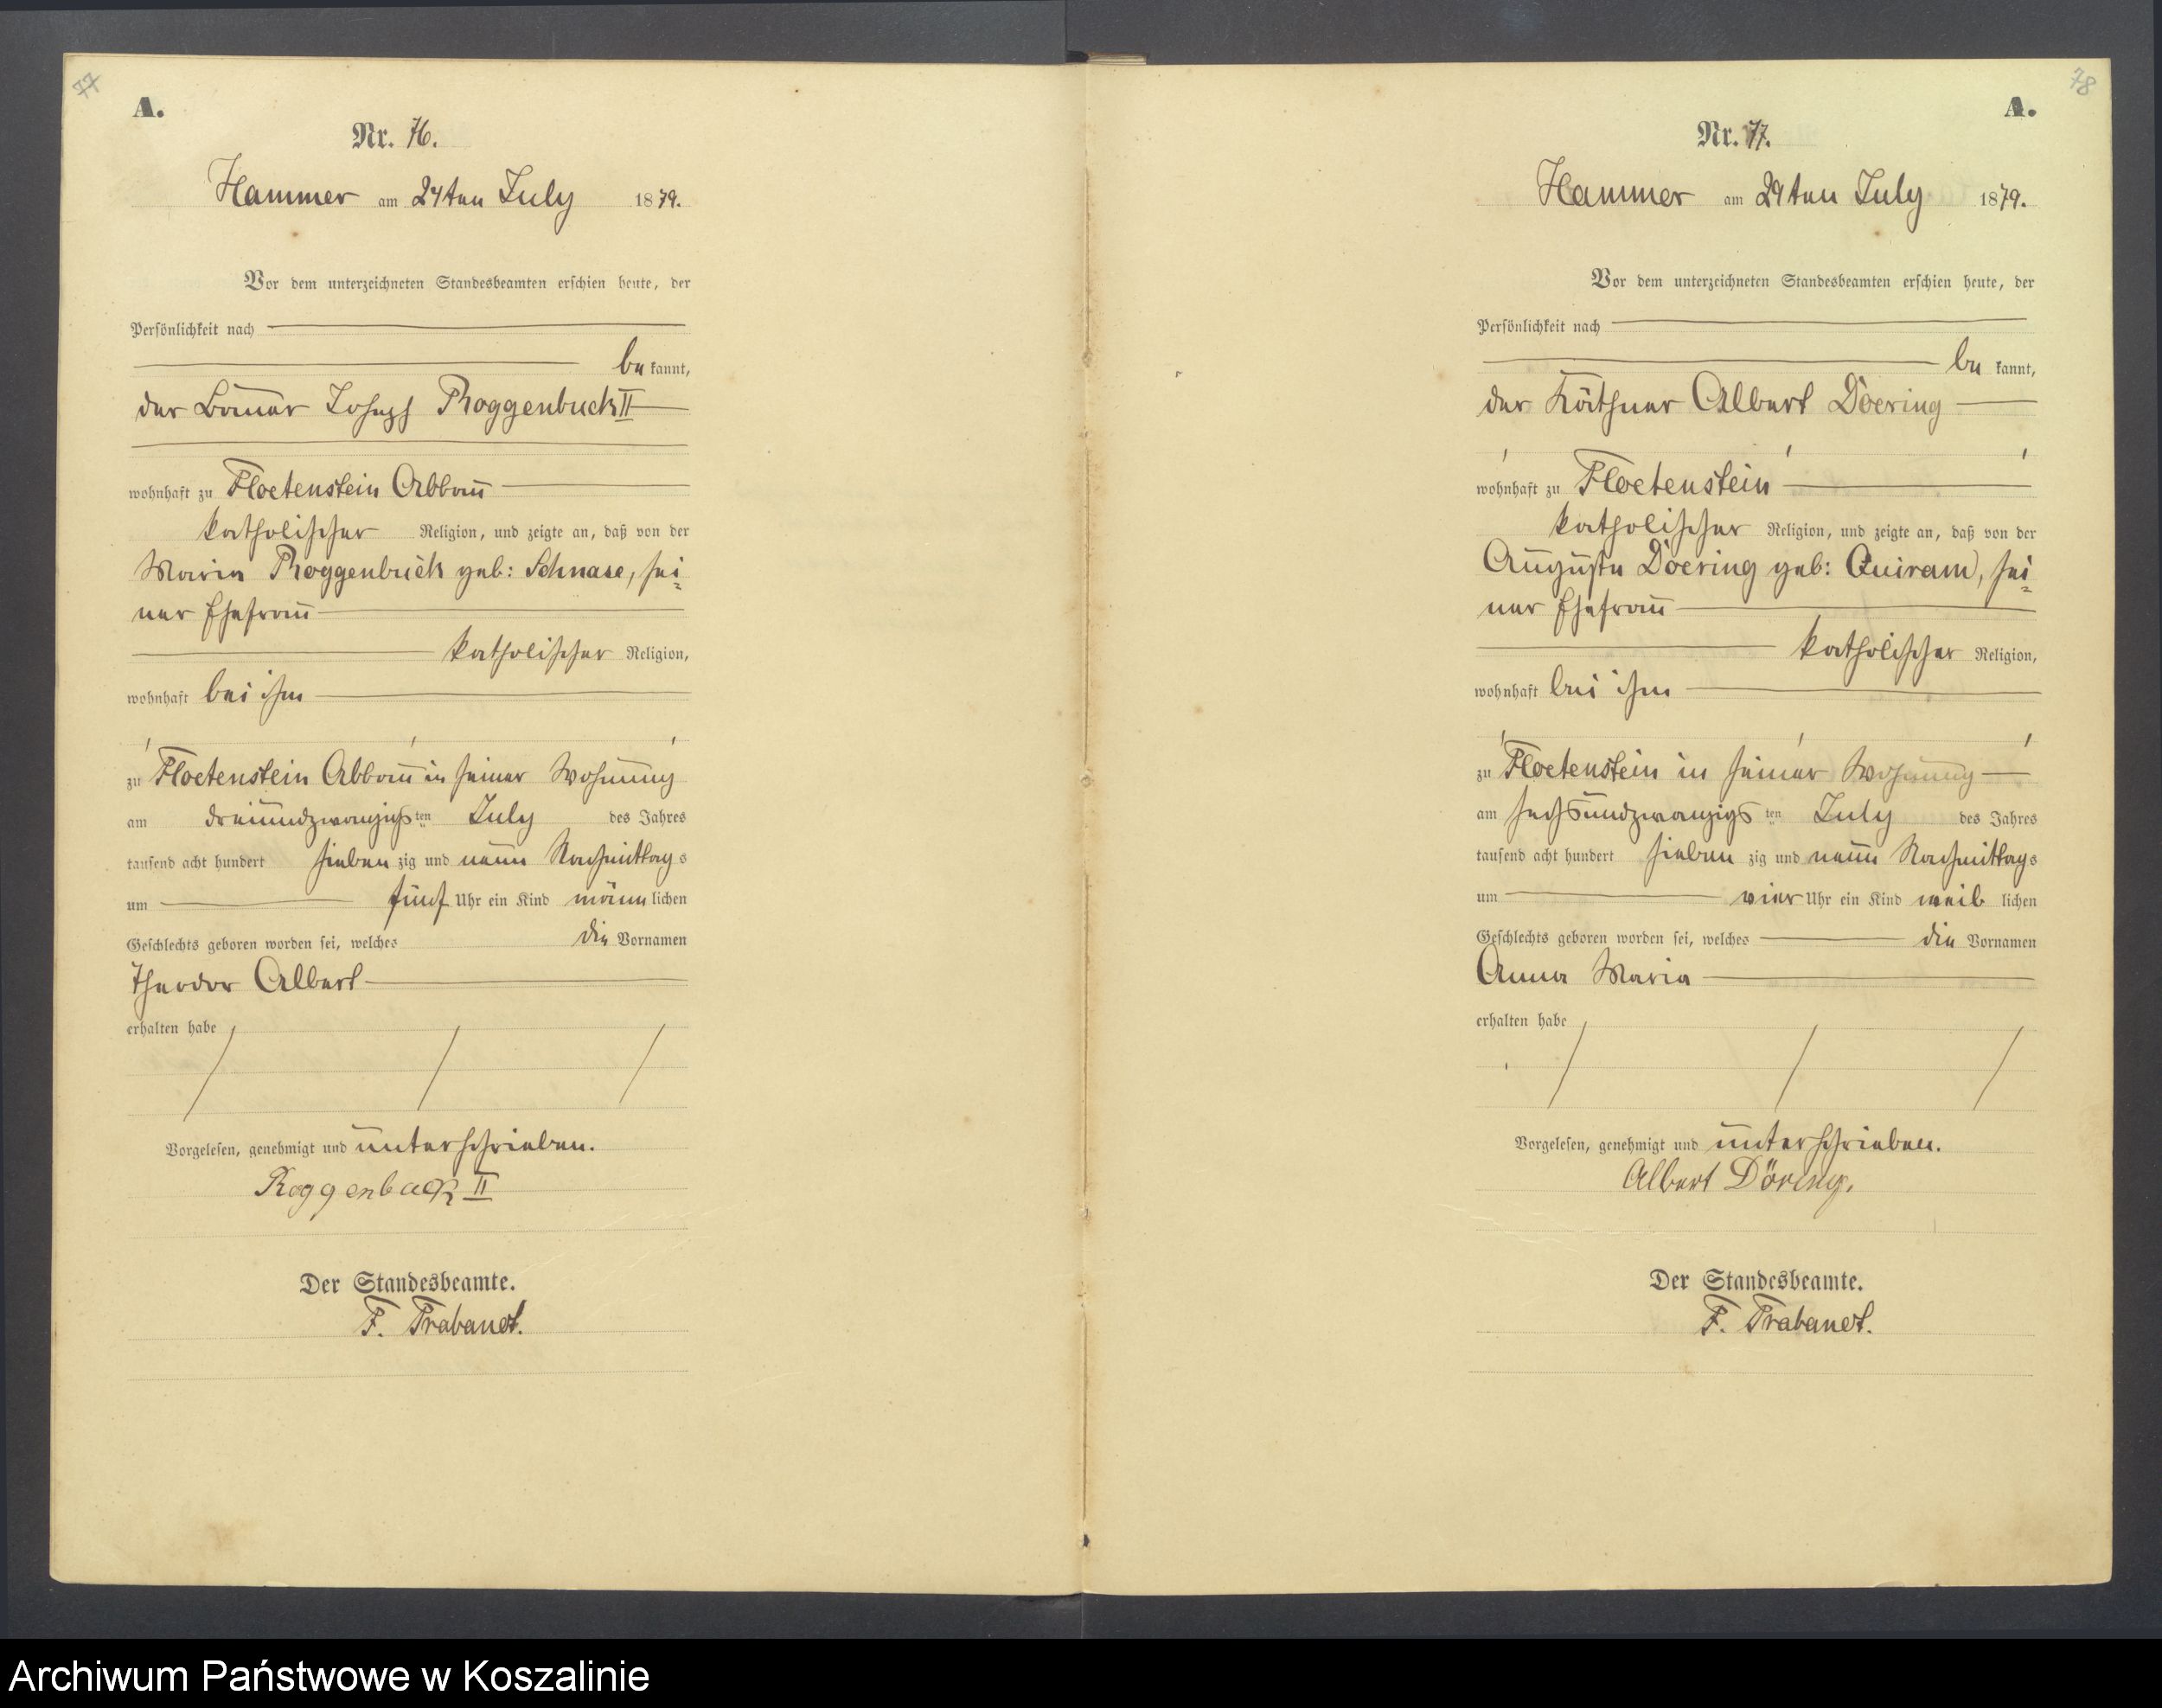 77
A.
Nr. 76.
Hammer am 24ten July 1879.
Vor dem unterzeichneten Standesbeamten erschien heute, der
Persönlichkeit nach
be kannt,
der Bauer Joseph Roggenbuck II
wohnhaft zu Floetenstein Abbau
katholischer Religion, und zeigte an, daß von der
Maria Roggenbuck geb: Schnase, sei=
ner Ehefrau
katholischer Religion,
wohnhaft bei ihm
zu Floetenstein Abbau in seiner Wohnung
am dreiundzwanzigsten July des Jahres
tausend acht hundert siebenzig und neun Nachmittags
um fünf Uhr ein Kind männlichen
Geschlechts geboren worden sei, welches die Vornamen
Theodor Albert
erhalten habe
Vorgelesen, genehmigt und unterschrieben.
Roggenbuck II
Der Standesbeamte.
F. Trabandt.
78
A.
Nr. 77.
Hammer am 29ten July 1879.
Vor dem unterzeichneten Standesbeamten erschien heute, der
Persönlichkeit nach
be kannt,
der Käthner Albert Doering
wohnhaft zu Floetenstein
katholischer Religion, und zeigte an, daß von der
Auguste Doering geb: Quiram, sei=
ner Ehefrau
katholischer Religion,
wohnhaft bei ihm
zu Floetenstein in seiner Wohnung
am sechsundzwanzigsten July des Jahres
tausend acht hundert siebenzig und neun Nachmittags
um vier Uhr ein Kind weiblichen
Geschlechts geboren worden sei, welches die Vornamen
Anna Maria
erhalten habe
Vorgelesen, genehmigt und unterschrieben.
Albert Döring.
Der Standesbeamte.
F. Trabandt.
Archiwum Państwowe w Koszalinie